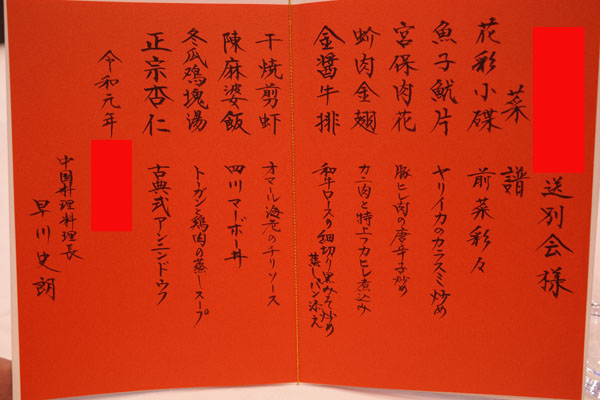 送別会様
菜譜
花彩小碟 前菜彩々
魚子魷片 ヤリイカのカラスミ炒め
宮保肉花 豚ヒレ肉の唐辛子炒め
蚧肉金翅 カニ肉と特上フカヒレ煮込み
金醤牛排 和牛ロースの細切り黒みそ炒め
蒸しパン添え
干焼剪虾 オマール海老のチリソース
陳麻婆飯 四川マーボー丼
冬瓜鶏塊湯 トーガンと鶏肉の蒸しスープ
正宗杏仁 古典式アンニンドウフ
令和元年
中国料理料理長
早川史朗